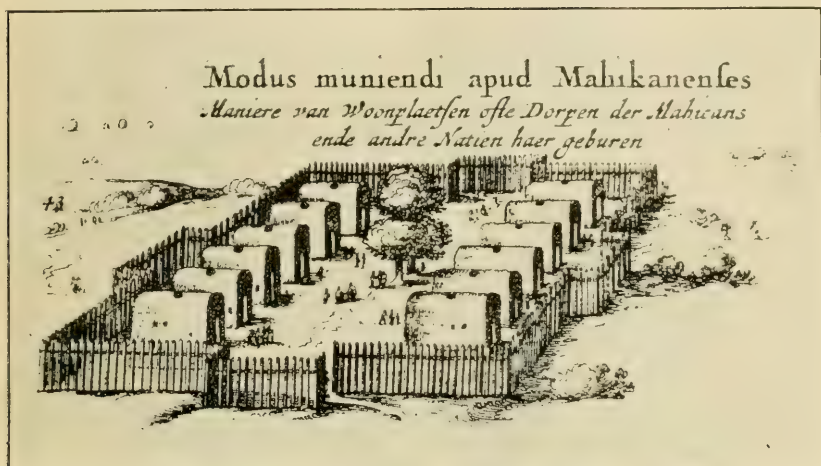 Modus muniendi apud Mahikanenſes
Maniere van Woonplaetſen ofte Dorpen der Mahicans
ende andre Natien haer geburen
43